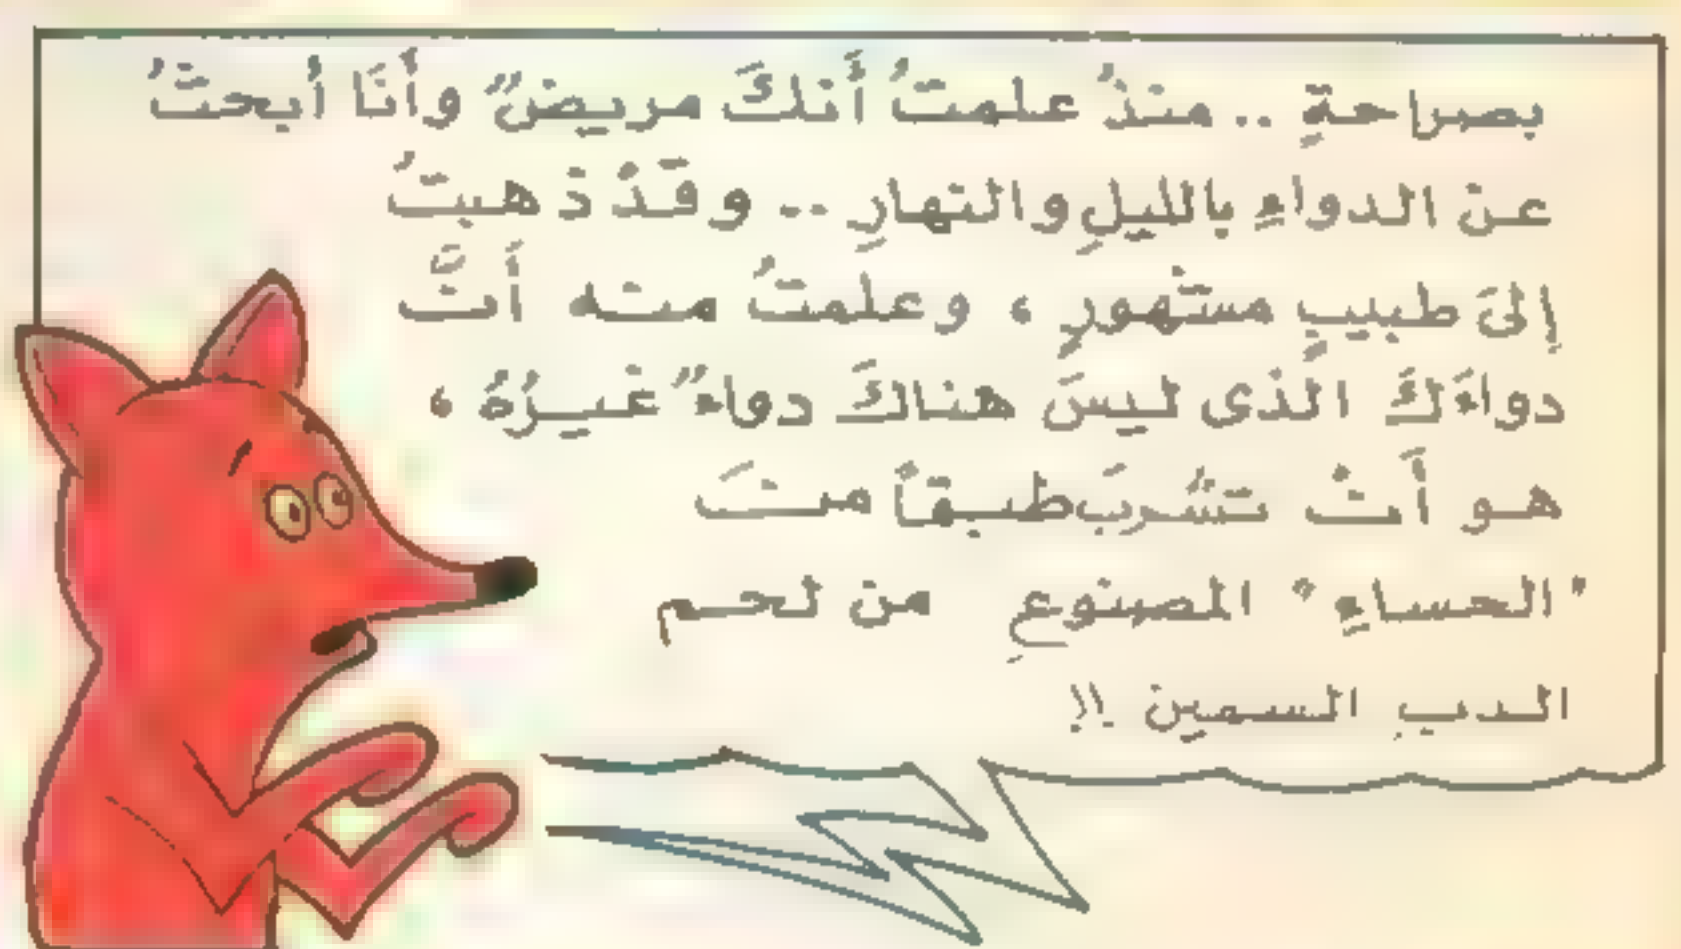 بصراحةٍ .. منذُ علمتُ أَنكَ مريضٌ وأَنَا أَبحثُ
عنْ الدواءِ بالليلِ والنهارِ .. وقَدْ ذهبتُ
إِلىَ طبيبٍ مشهورٍ ، وعلمتُ منه أَنَّ
دواءَكَ الذى ليسَ هناكَ دواءٌ غيرُهُ ،
هو أَنْ تشْربَ طبقاً منَ
"الحساءِ" المصنوعِ من لحم
الدبِ السمينِ !!